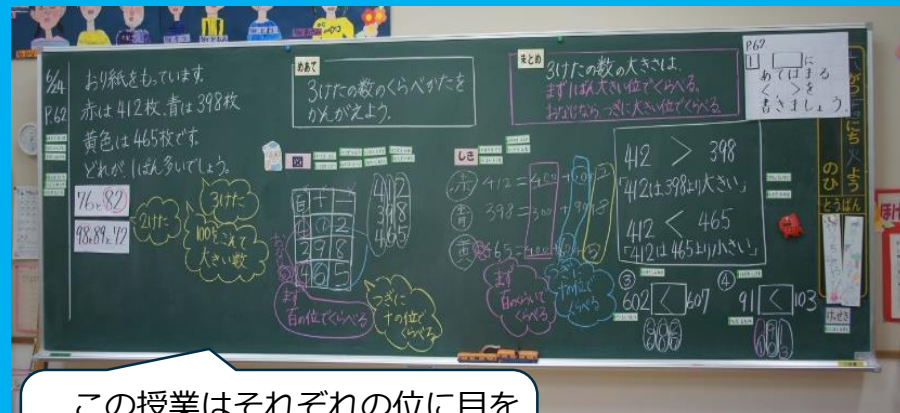 6/24
P.62
おり紙をもっています。
赤は412枚、青は398枚
黄色は465枚です。
どれが、1ばん多いでしょう。
76と82
98と89と92
2けた
3けた
100をこえて
大きい数
めあて
3けたの数のくらべかたを
かんがえよう。
図
百十一
412
398
465
412
398
465
まず
百の位でくらべる
つぎに
十の位で
くらべる
まとめ
3けたの数の大きさは、
まず1ばん大きい位でくらべる。
おなじなら つぎに大きい位でくらべる。
しき
赤 412=400+10+2
青 398=300+90+8
黄 465=400+60+5
まず
百のくらいで
くらべる
つぎに
十の位で
くらべる
412 > 398
「412は398より大きい」
412 < 465
「412は465より小さい」
③
602 < 607
④
91 < 103
P.62
1 □に
あてはまる
<、>を
書きましょう。
がつ
にち
火よう
のひ
とうばん
けっせき
ほけ
この授業はそれぞれの位に目を